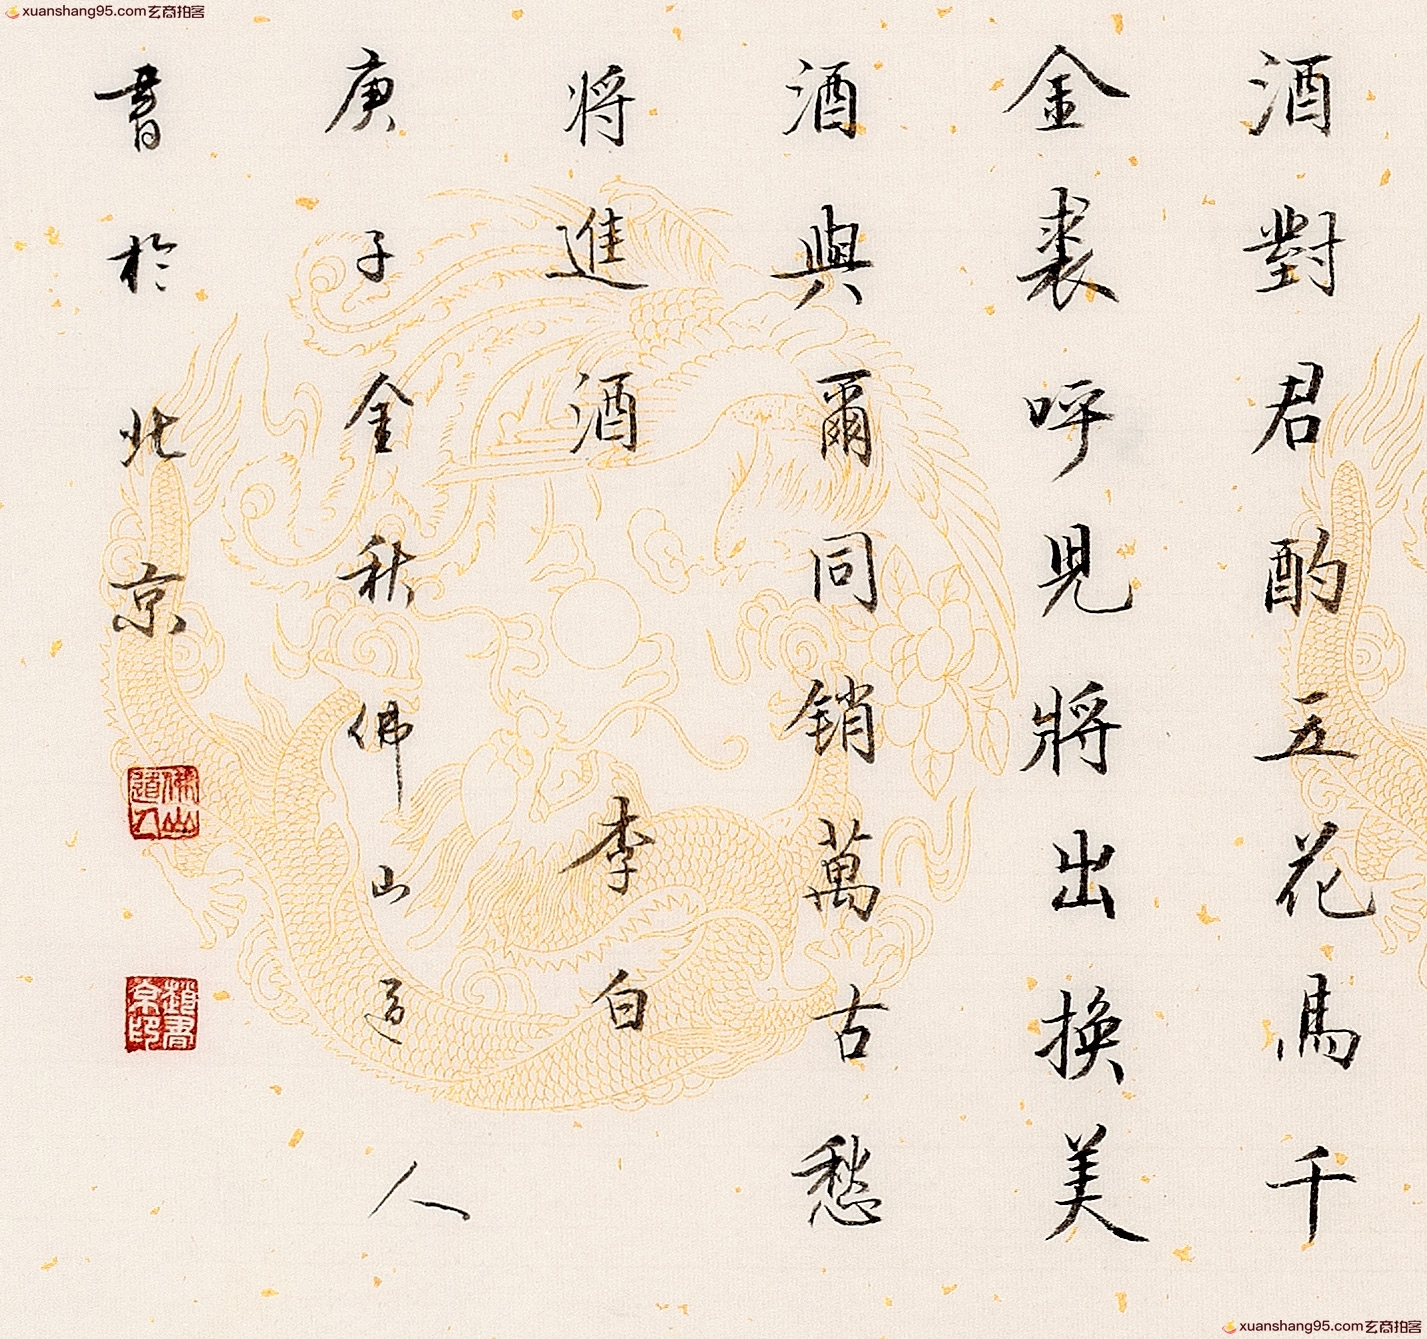 xuanshang95.com玄商拍客
酒對君酌五花馬千
金裘呼兒將出換美
酒與爾同销萬古愁
将進酒 李白
庚子金秋佛山道人
書於北京
佛山道人
xuanshang95.com玄商拍客